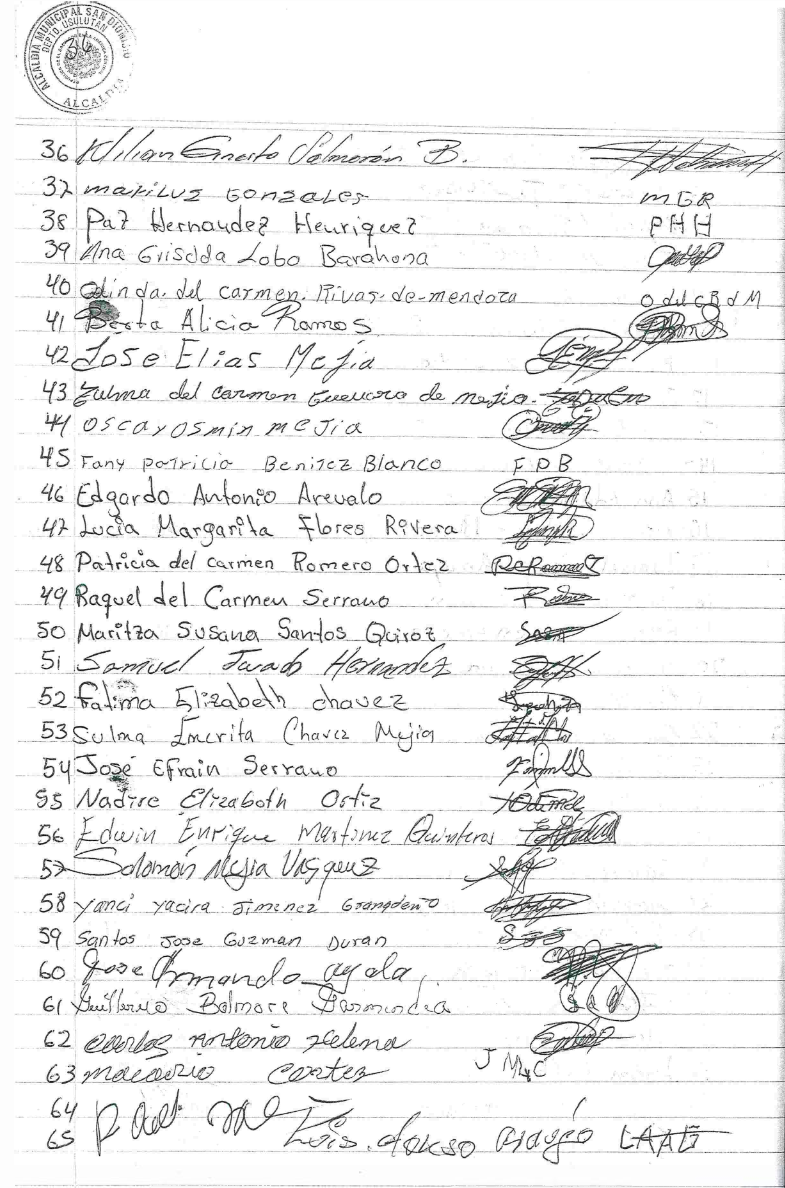 ALCALDIA MUNICIPAL SAN DIONICIO
DEPTO. USULUTAN
36
ALCALDIA
36 Wilian Ernesto Salmerón B.
37 mariluz Gonzales MGR
38 Paz Hernandez Henriquez PHH
39 Ana Griselda Lobo Barahona
40 Olinda. del carmen. Rivas-de-mendoza O del C R d M
41 Berta Alicia Ramos
42 Jose Elias Mejia
43 Zulma del carmen Guevara de mejia.
44 oscar osmin mejia
45 Fany patricia Benitez Blanco FPB
46 Edgardo Antonio Arevalo
47 Lucia Margarita Flores Rivera
48 Patricia del carmen Romero Ortez
49 Raquel del Carmen Serrano
50 Maritza Susana Santos Quiroz
51 Samuel Hernandez
52 Fatima Elizabeth chavez
53 Sulma Emerita Chavez Mejia
54 José Efrain Serrano
55 Elizabeth Ortiz
56 Edwin Enrique Martinez Quinteros
57 Solomón Mejia Vasquez
58 Yanci Yacira Jimenez
59 Santos Jose Guzman Duran
60 Jose Armando ayala.
61 Guillermo Balmore
62 carlos Antonio
63 macario cortez J M C
64
65 Luis. Alonso araujo LAAG